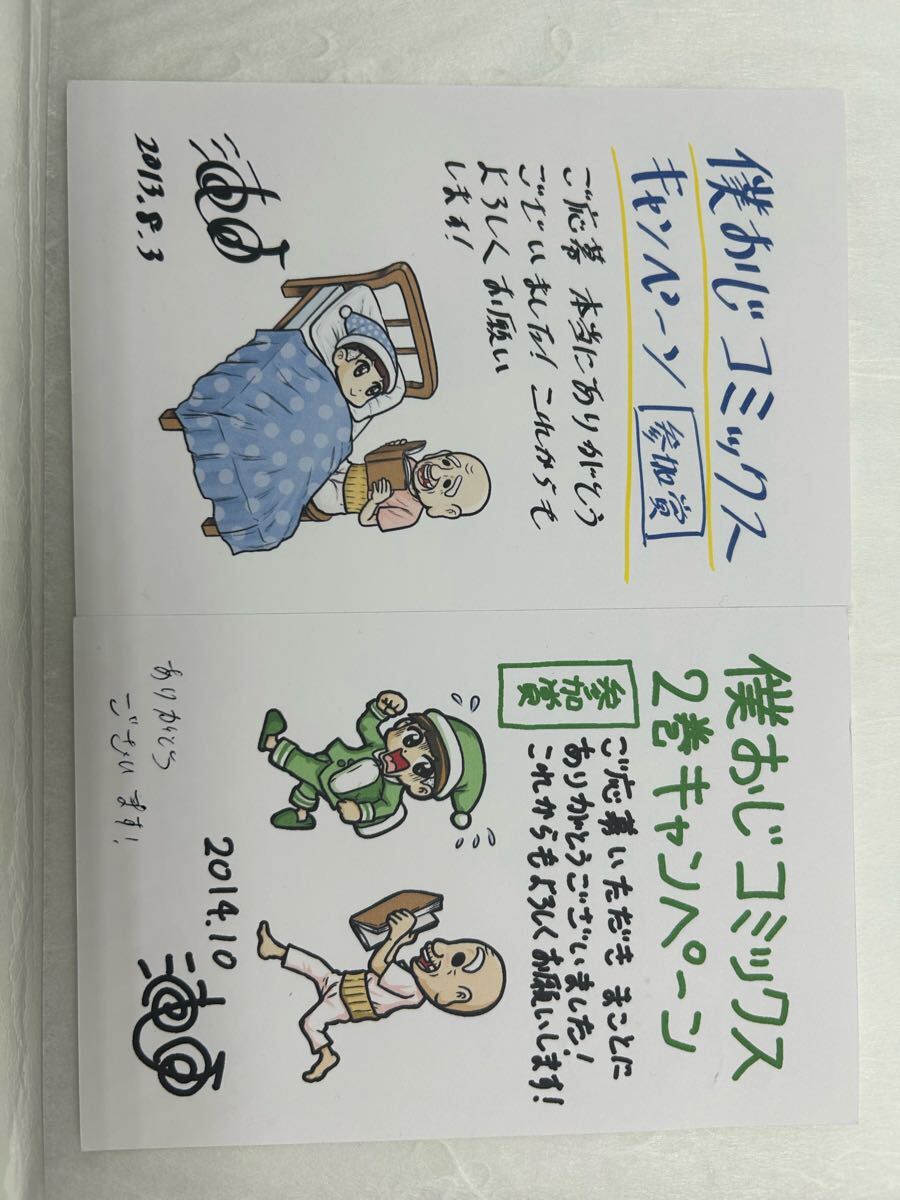 僕おじコミックス
キャンペーン 参加賞
ご応募 本当にありがとう
ございました! これからも
よろしく お願い
します!
2013.8.3
僕おじコミックス
2巻キャンペーン
参加賞
ご応募いただき まことに
ありがとうございました!
これからもよろしくお願いします!
2014.10
ありがとう
ございます!